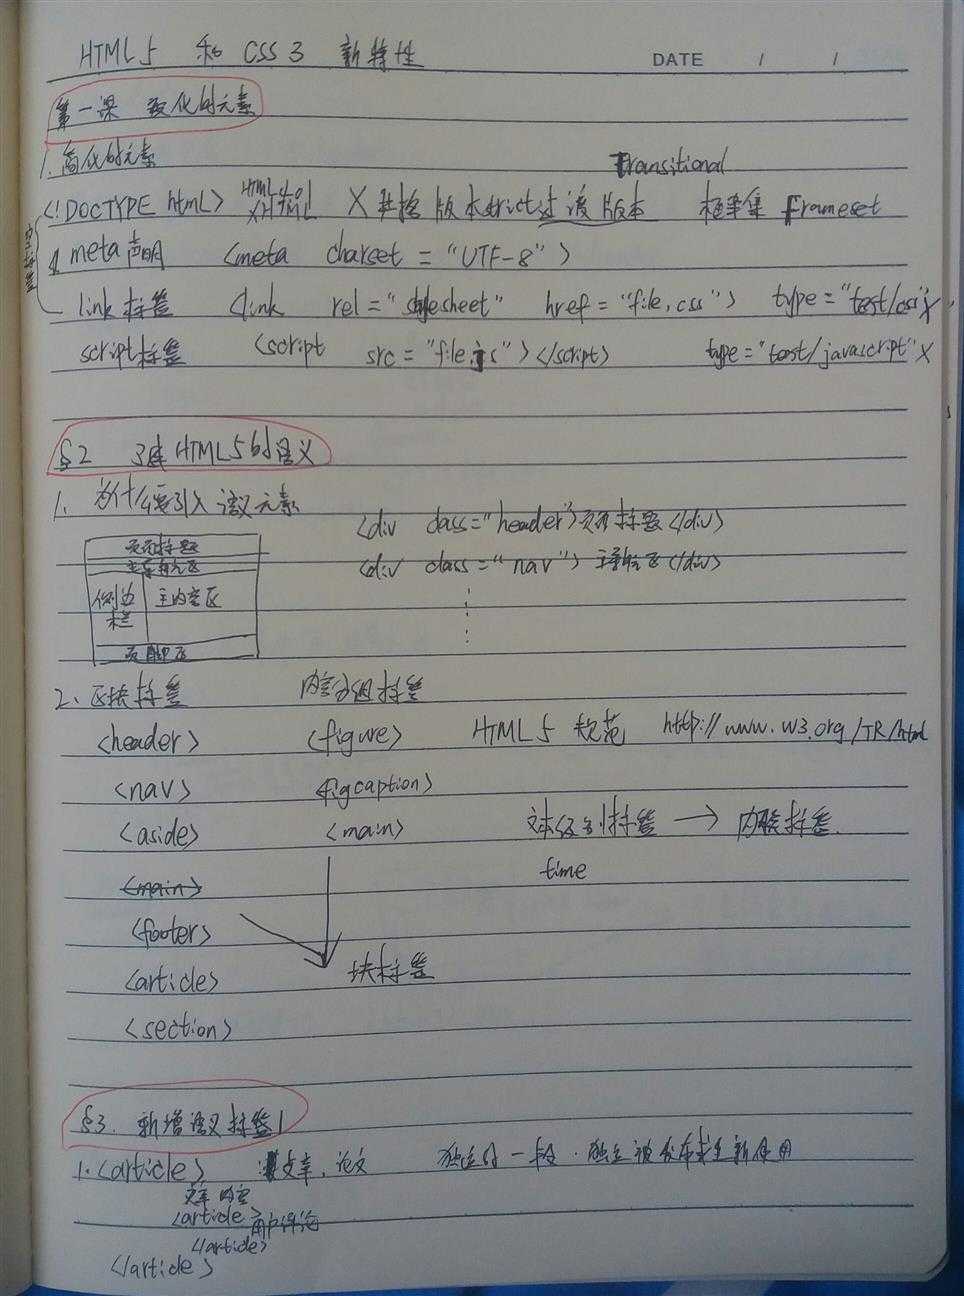 HTML5 和 CSS3 新特性
DATE / /
第一课 改化的元素
1. 简化的元素
Transitional
<!DOCTYPE html> HTML4.01 XHTML X 性格 版本strict过渡版本 框架集 Frameset
meta声明 <meta charset = "UTF-8">
link标签 <link rel="stylesheet" href="file.css"> type="test/css"X
script标签 <script src="file.js"></script> type="test/javascript"X
§2 HTML5的含义
1. 为什么要引入语义元素
<div class="header">页面标题</div>
<div class="nav">主导航区</div>
页面标题
主导航区
侧边栏 主内容区
页脚区
2. 区块标签 内容分组标签
<header> <figure> HTML5 规范 http://www.w3.org/TR/html
<nav> <figcaption>
<aside> <main> 文本级别标签 → 内联标签
<main> time
<footer>
<article> 块标签
<section>
§3. 新增语义标签1
1. <article> 文章, 论文 独立的一块. 独立被发布或重新使用
文章内容
<article> 用户评论
</article>
</article>